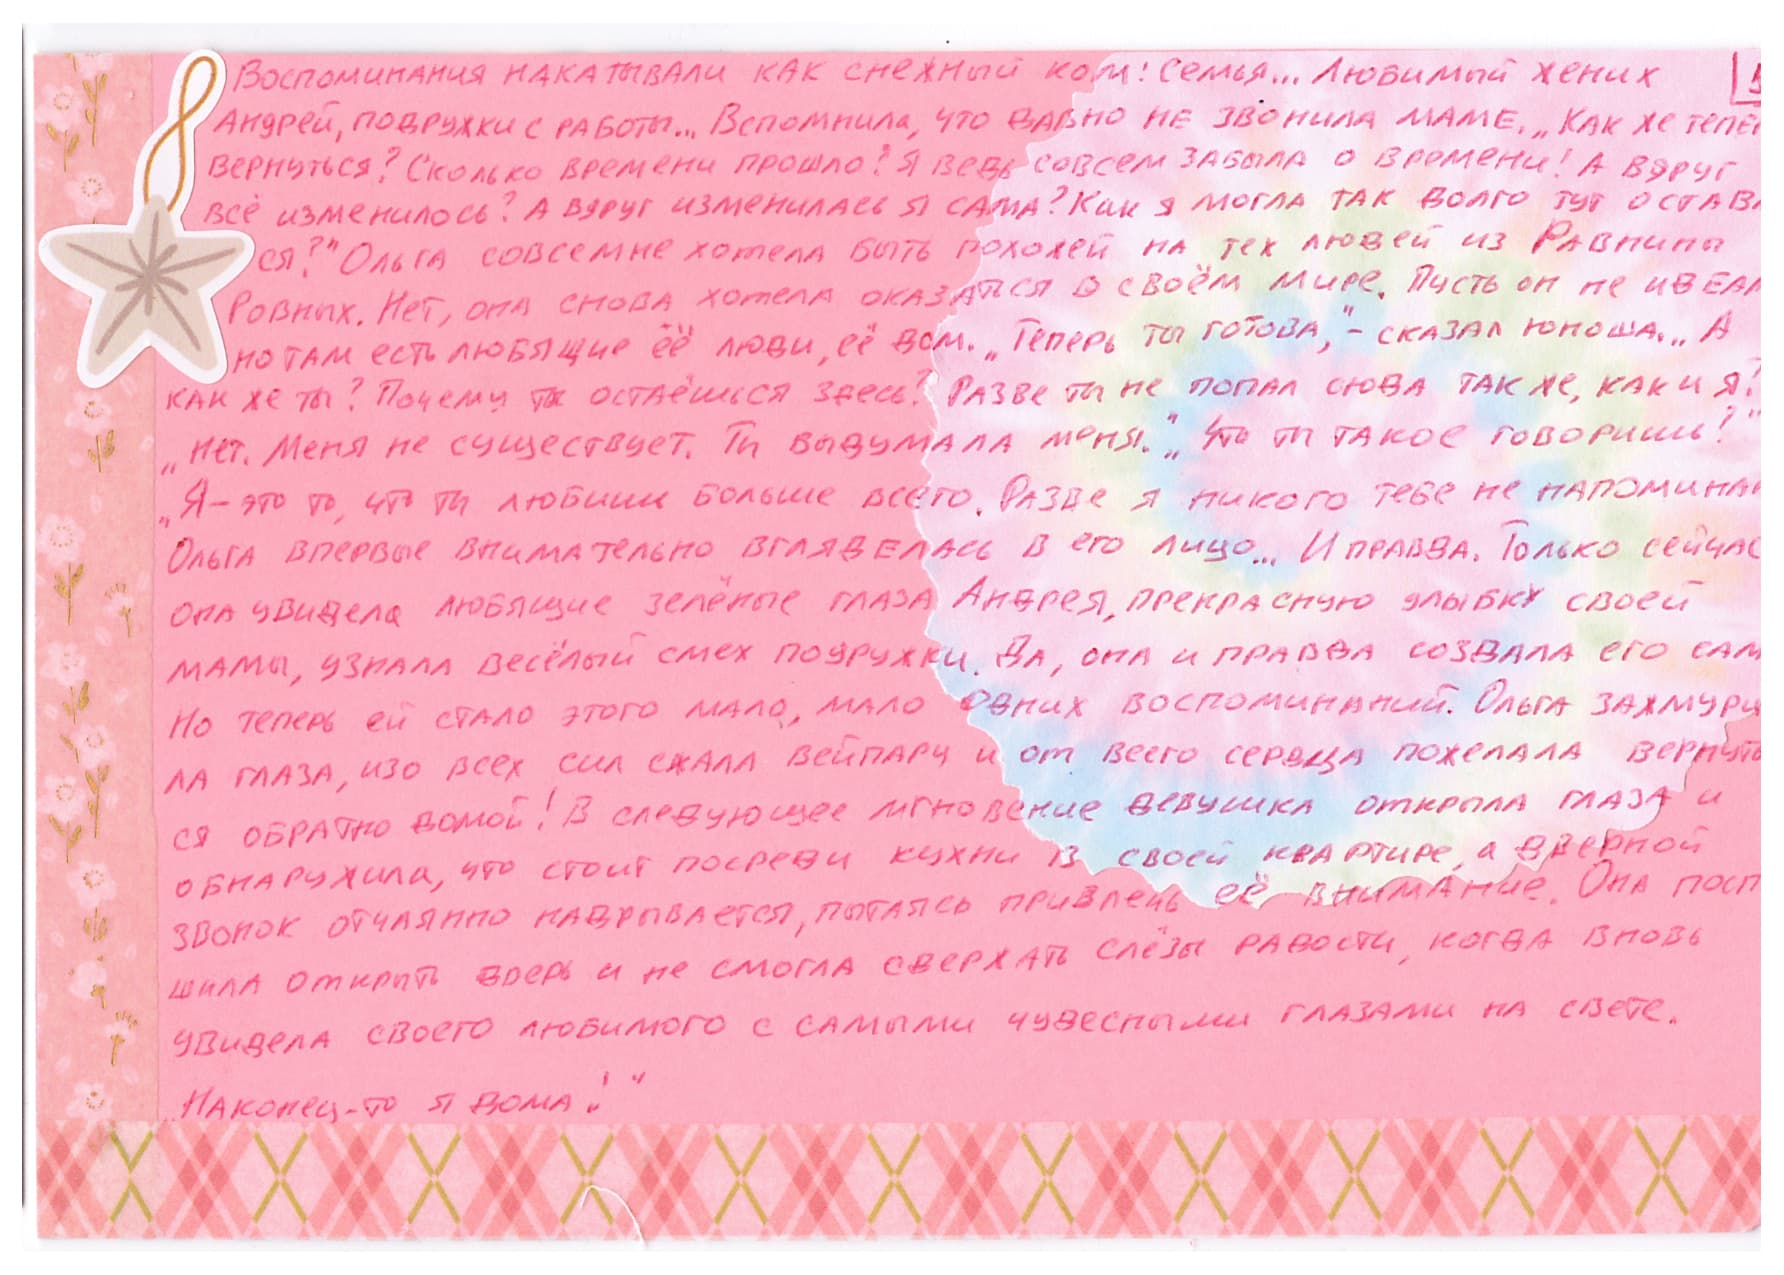 Воспоминания накатывали как снежный ком: Семья... Любимый жених
Андрей, подружки с работы... Вспомнила, что давно не звонила маме. „Как же тепер
вернуться? Сколько времени прошло? Я ведь совсем забыла о времени! А вдруг
всё изменилось? А вдруг изменилась я сама? Как я могла так долго тут остава
ся?" Ольга совсем не хотела быть похожей на тех людей из Равнины
Ровных. Нет, она снова хотела оказаться в своём мире. Пусть он не идеал
но там есть любящие её люди, её дом. „Теперь ты готова," - сказал юноша. „А
как же ты? Почему ты остаёшься здесь? Разве ты не попал сюда так же, как и я?
„Нет. Меня не существует. Ты выдумала меня." „Что ты такое говоришь?"
„Я - это то, что ты любишь больше всего. Разве я никого тебе не напоминаю
Ольга впервые внимательно вгляделась в его лицо... И правда. Только сейчас
она увидела любящие зелёные глаза Андрея, прекрасную улыбку своей
мамы, узнала весёлый смех подружки. Да, она и правда создала его сам
Но теперь ей стало этого мало, мало одних воспоминаний. Ольга зажмури
ла глаза, изо всех сил сжала вейпару и от всего сердца пожелала вернуть
ся обратно домой! В следующее мгновение девушка открыла глаза и
обнаружила, что стоит посреди кухни в своей квартире, а дверной
звонок отчаянно надрывается, пытаясь привлечь её внимание. Она посп
шила открыть дверь и не смогла сдержать слёзы радости, когда вновь
увидела своего любимого с самыми чудесными глазами на свете.
„Наконец-то я дома!"